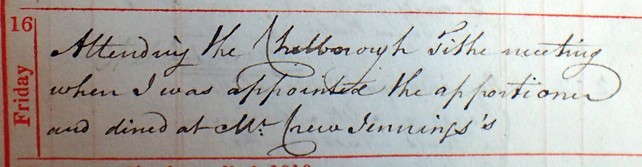 16
Friday
Attending the Chelborough Tithe meeting
when I was appointed the apportioner
and dined at Mr. Crew Jennings's